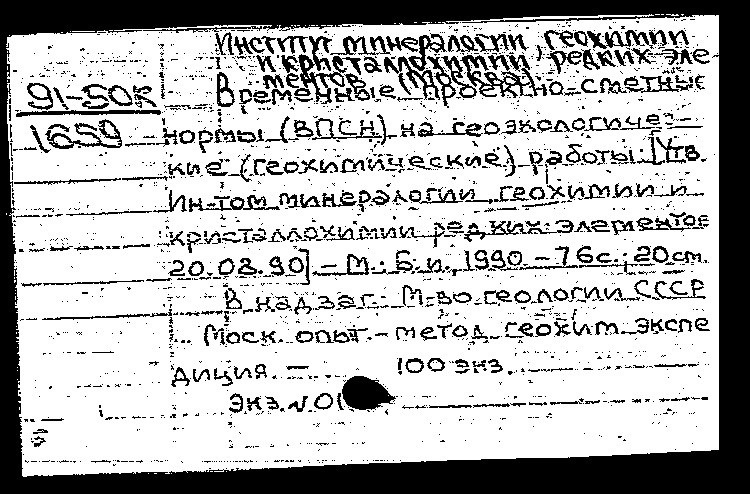 Институт минералогии, геохимии
и кристаллохимии редких эле
ментов (Москва).
91-50к
Временные проектно-сметные
1659
нормы (ВПСН) на геоэкологичес-
кие (геохимические) работы: [Утв.
Ин-том минералогии, геохимии и
кристаллохимии редких элементов
20.08.90] – М.: Б.и., 1990 – 76с.; 20см.
В надзаг.: М-во геологии СССР
Моск. опыт.-метод. геохим. экспе
диция. — 100 экз.
Экз. N 01